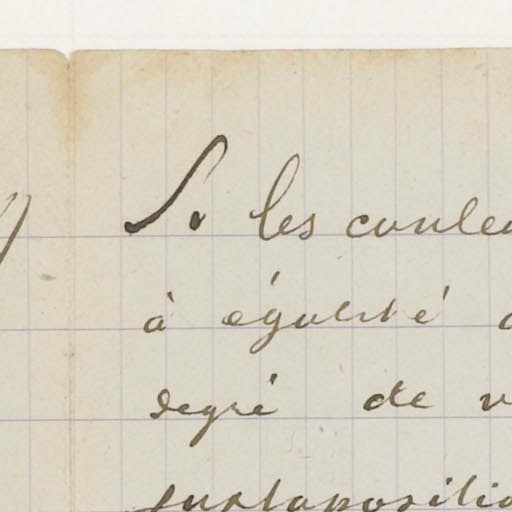 Si les couleu
à égalité d
degré de v
juxtapositio